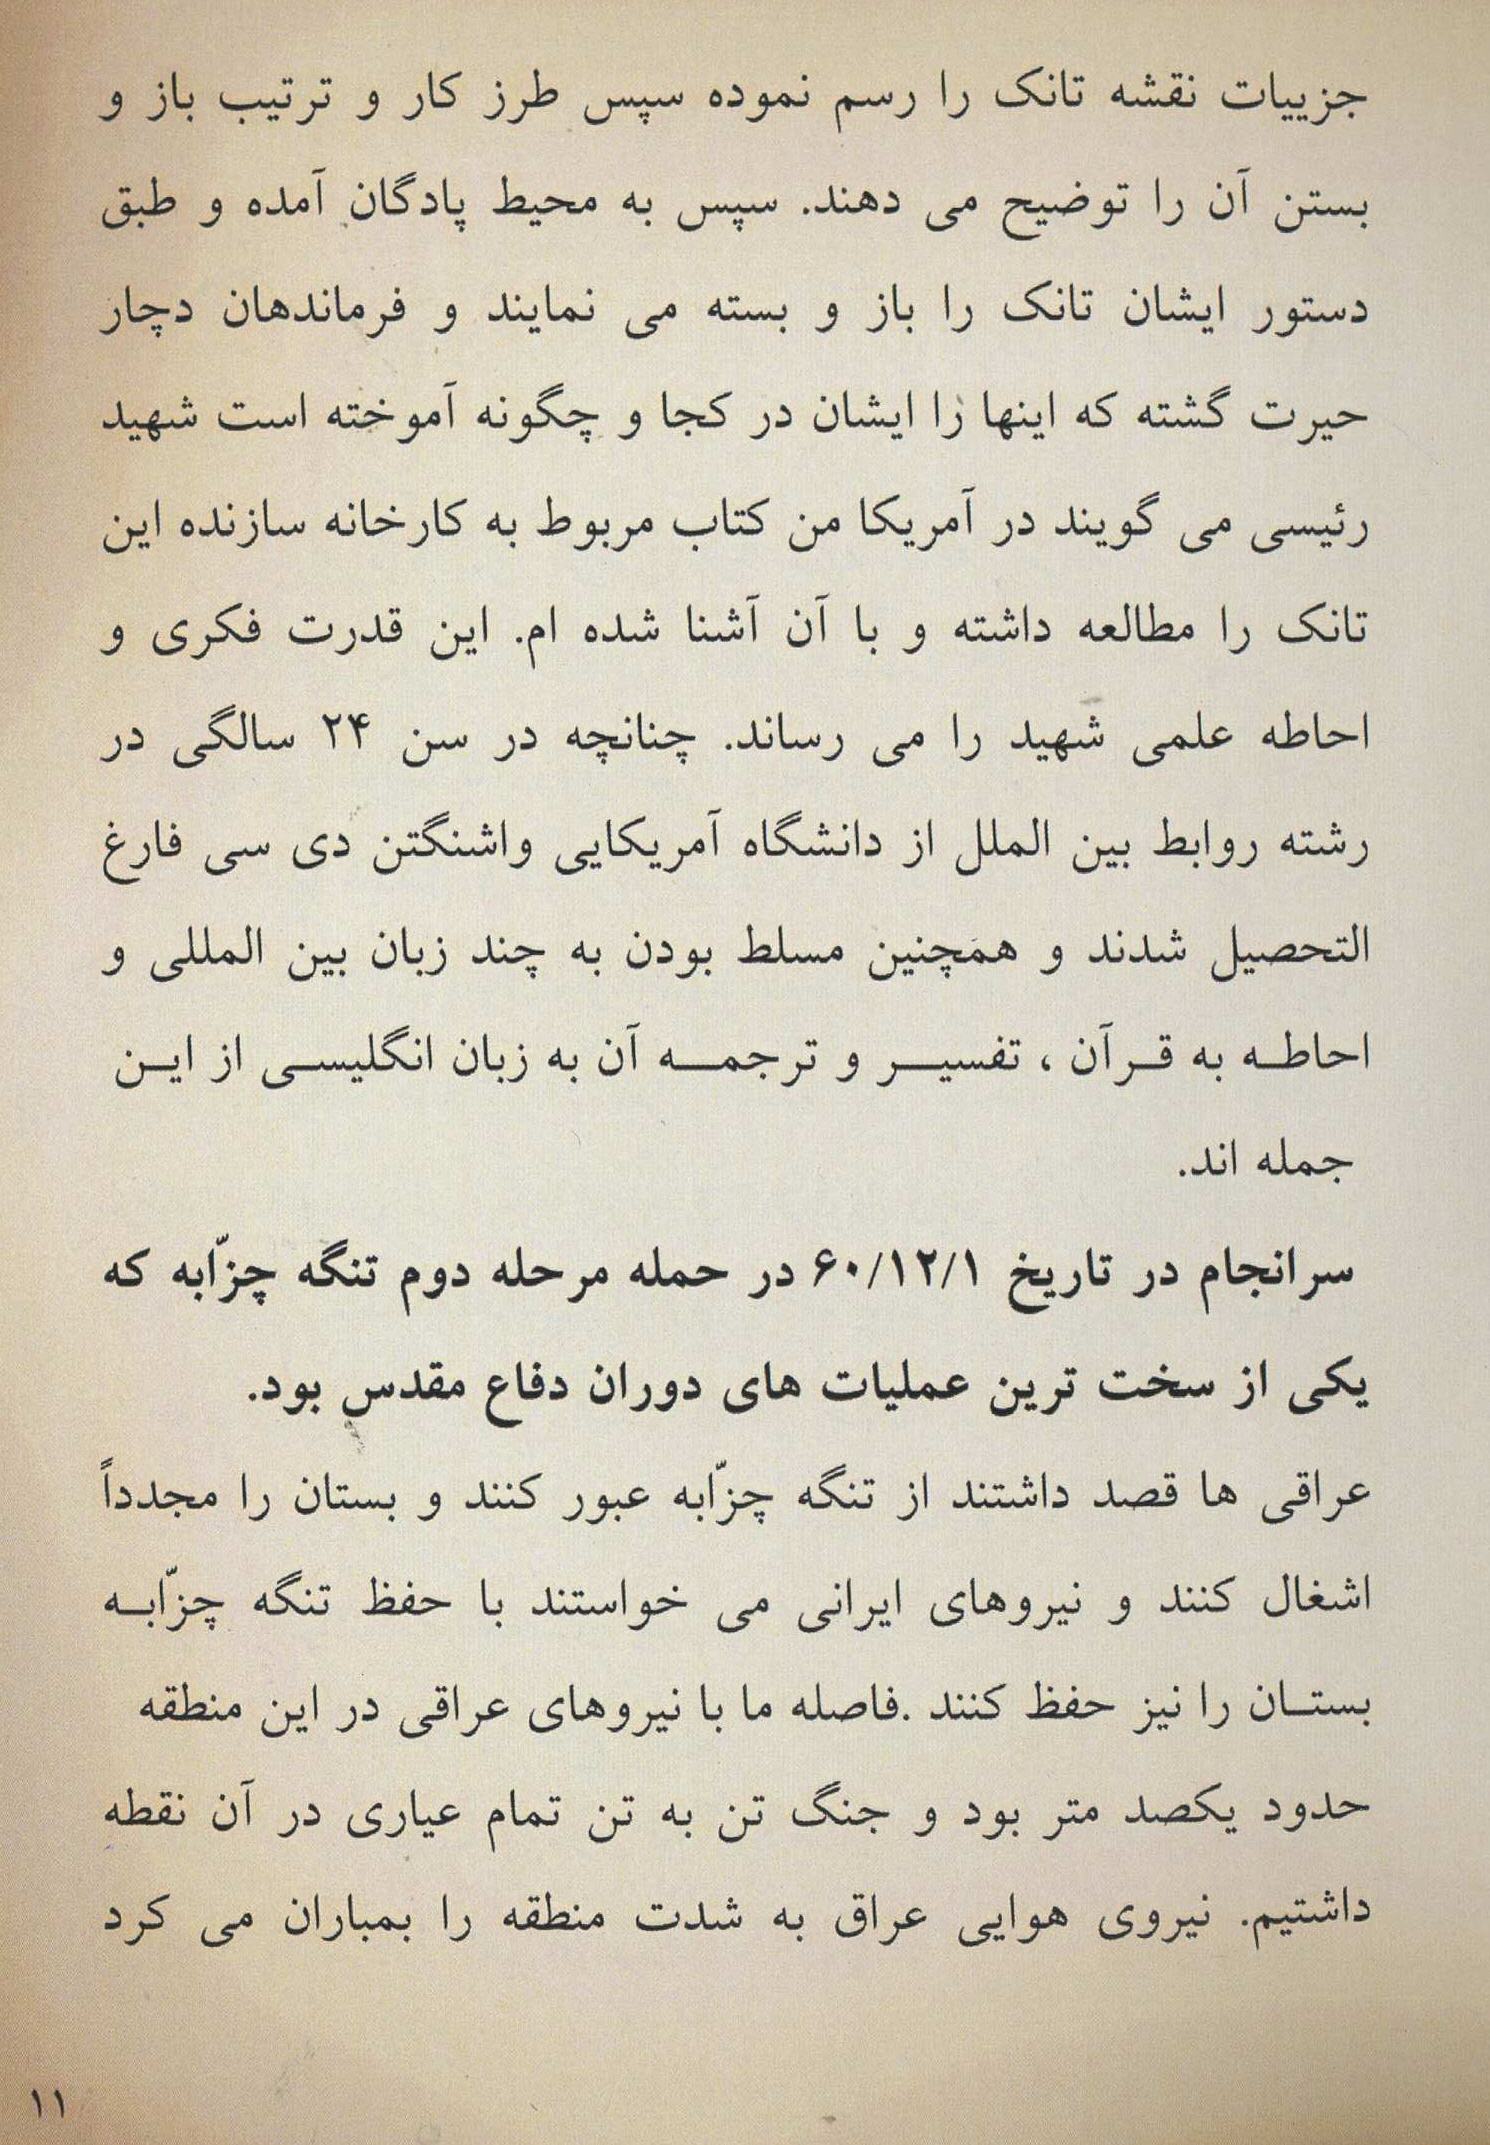 جزییات نقشه تانک را رسم نموده سپس طرز کار و ترتیب باز و
بستن آن را توضیح می دهند. سپس به محیط پادگان آمده و طبق
دستور ایشان تانک را باز و بسته می نمایند و فرماندهان دچار
حیرت گشته که اینها را ایشان در کجا و چگونه آموخته است شهید
رئیسی می گویند در آمریکا من کتاب مربوط به کارخانه سازنده این
تانک را مطالعه داشته و با آن آشنا شده ام. این قدرت فکری و
احاطه علمی شهید را می رساند. چنانچه در سن ۲۴ سالگی در
رشته روابط بین الملل از دانشگاه آمریکایی واشنگتن دی سی فارغ
التحصیل شدند و همچنین مسلط بودن به چند زبان بین المللی و
احاطـه به قـرآن ، تفسیـر و ترجمـه آن به زبان انگلیسـی از ایـن
جمله اند.
سرانجام در تاریخ ۶۰/۱۲/۱ در حمله مرحله دوم تنگه چزّابه که
یکی از سخت ترین عملیات های دوران دفاع مقدس بود.
عراقی ها قصد داشتند از تنگه چزّابه عبور کنند و بستان را مجدداً
اشغال کنند و نیروهای ایرانی می خواستند با حفظ تنگه چزّابـه
بستـان را نیز حفظ کنند .فاصله ما با نیروهای عراقی در این منطقه
حدود یکصد متر بود و جنگ تن به تن تمام عیاری در آن نقطه
داشتیم. نیروی هوایی عراق به شدت منطقه را بمباران می کرد
۱۱